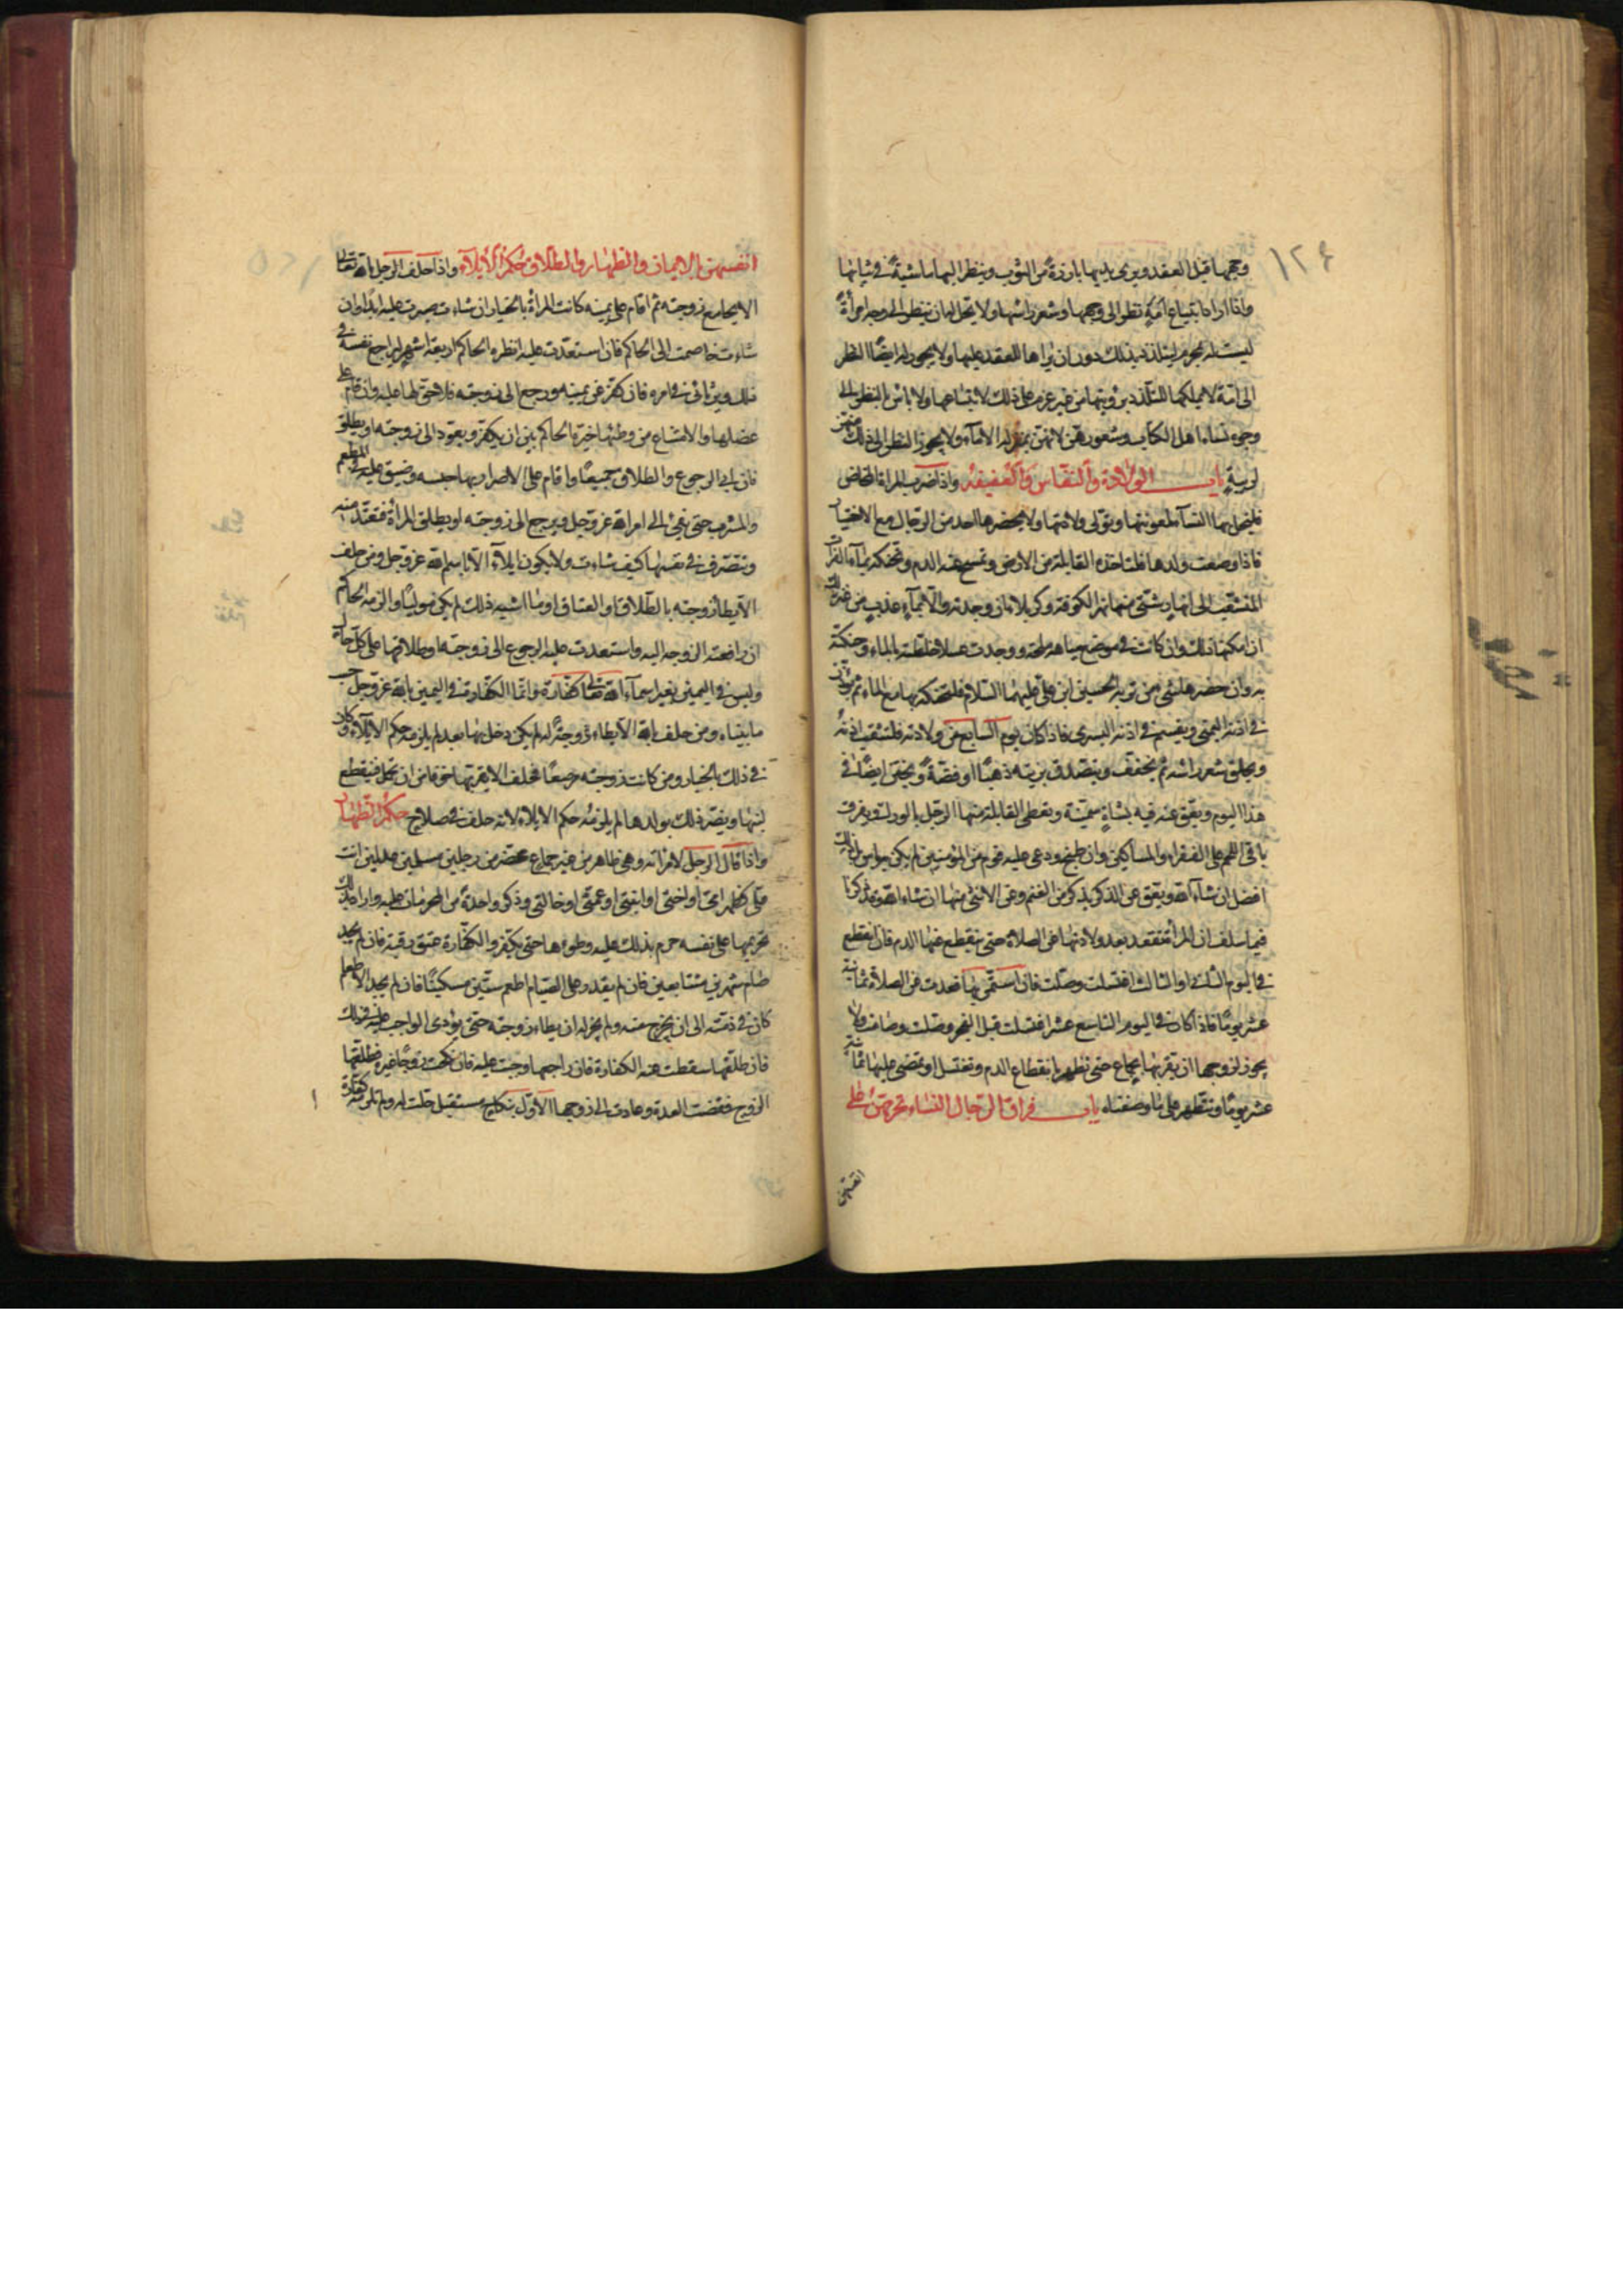 ١٢٤
وجهها قبل العقد ويرى يديها بارزة من الثوب وينظر اليها ماشية في ثيابها
واذا اراد ابتياع امة نظر الى وجهها وشعر راسها ولا يحل له ان ينظر الى وجه امرأة
ليست له بمحرم ليتلذذ بذلك دون ان يراها للعقد عليها ولا يجوز له ايضًا النظر
الى امة لا يملكها للتلذذ برؤيتها من غير عزم على ذلك لابتياعها ولا باس بالنظر الى
وجوه نساء اهل الكتاب وشعورهن لانهن بمنزلة الاماء ولا يجوز النظر الى ذلك منهن
لريبة باب الولادة والنفاس والعقيقة واذا ضرب المراة المخاض
فليخل بها النساء لمعونتها وتولى ولادتها ولا يحضرها احد من الرجال مع الاختيار
فاذا وضعت ولدها فلتاخذه القابلة من الارض وتمسح عنه الدم وتحنكه بماء الفرات
المنشعب الى انهار شتى منها نهر الكوفة وكربلا ان وجدته والا بماء عذب من غيره
ان امكنها ذلك وان كانت في موضع مياهه ملحة ووجدت عسلا خلطته بالماء وحنكته
به وان حضرها شئ من تربة الحسين ابن علي عليهما السلام فلتحنكه بها مع الماء ثم يؤذن
في اذنه اليمنى ويقيم في اذنه اليسرى فاذا كان يوم السابع من ولادته فلتثقب اذنه
ويحلق شعر راسه ثم يجفف ويتصدق بزنته ذهبًا او فضة ويختن ايضًا في
هذا اليوم ويعق عنه فيه بشاة سمينة ويعطى القابلة منها الرجل بالورك ويفرق
باقى اللحم على الفقراء والمساكين وان طبخ ودعى عليه قوم من المؤمنين لم يكن به باس بل ذلك
افضل ان شاء الله ويعق عن الذكر بذكر من الغنم وعن الانثى منها ان شاء الله وقد ذكرنا
فيما سلف ان المرأة تقعد بعد ولادتها عن الصلاة حتى ينقطع عنها الدم فان انقطع
في اليوم الثاني او الثالث اغتسلت وصلت فان استمر بها قعدت عن الصلاة ثمانية
عشر يومًا فاذا كان في اليوم التاسع عشر اغتسلت قبل الفجر وصلت وصامت ولا
يجوز لزوجها ان يقربها بجماع حتى تطهر بانقطاع الدم وتغتسل او تمضى عليها ثمانية
عشر يومًا وتتطهر على ما وصفناه باب فراق الرجال النساء وتحريمهن على
انفسهن
انفسهن بالايمان والظهار والطلاق حكم الايلاء واذا حلف الرجل بالله تعالى
الا يجامع زوجته ثم اقام على يمينه كانت المرأة بالخيار ان شاءت صبرت عليه ابدا وان
شاءت خاصمت الى الحاكم فان استعدت عليه انظره الحاكم اربعة اشهر ليراجع نفسه في
ذلك ويرتأئ في امره فان كفر عن يمينه ورجع الى زوجته فلا حق لها عليه وان قام على
عضلها والامتناع من وطئها خيره الحاكم بين ان يكفر ويعود الى زوجته او يطلق
فان ابى الرجوع والطلاق جميعًا واقام على الاضرار بها حبسه وضيق عليه في المطعم
والمشرب حتى يفئ الى امر الله عز وجل ويرجع الى زوجته او يطلق المرأة فتعتد منه
وتتصرف في نفسها كيف شاءت ولا يكون ايلاء الا باسم الله عز وجل ومن حلف
الا يطأ زوجته بالطلاق او العتاق او ما اشبه ذلك لم يكن موليًا والزمه الحاكم
ان رافعته الزوجة اليه واستعدت عليه الرجوع الى زوجته او طلاقها على كل حال
وليس في اليمين بغير اسماء الله تعالى كفارة وانما الكفارة في اليمين بالله عز وجل حسب
ما بيناه ومن حلف بالله الا يطاء زوجة له لم يكن دخل بها بعد لم يلزمه حكم الايلاء وكان
في ذلك بالخيار ومن كانت زوجته مرضعًا فحلف الا يقربها خوفا من ان تحمل فينقطع
لبنها ويضر ذلك بولدها لم يلزمه حكم الايلاء لانه حلف في صلاح حكم الظهار
واذا قال الرجل لامراته وهي طاهر من غير جماع بمحضر من رجلين مسلمين عدلين انت
على كظهر امى او اختى او ابنتى او عمتى او خالتى وذكر واحدة من المحرمات عليه واراد بذلك
تحريمها على نفسه حرم بذلك عليه وطؤها حتى يكفر والكفارة عتق رقبة فان لم يجد
صام شهرين متتابعين فان لم يقدر على الصيام اطعم ستين مسكينًا فان لم يجد الاطعام
كان في ذمته الى ان يخرج عنه ولم يجز له ان يطاء زوجته حتى يؤدى الواجب عليه في ذلك
فان طلقها سقطت عنه الكفارة فان راجعها وجبت عليه فان نكحت زوجًا غيره فطلقها
الزوج فقضت العدة وعادت الى زوجها الاول بنكاح مستقبل حلت له ولم تلزمه كفارة